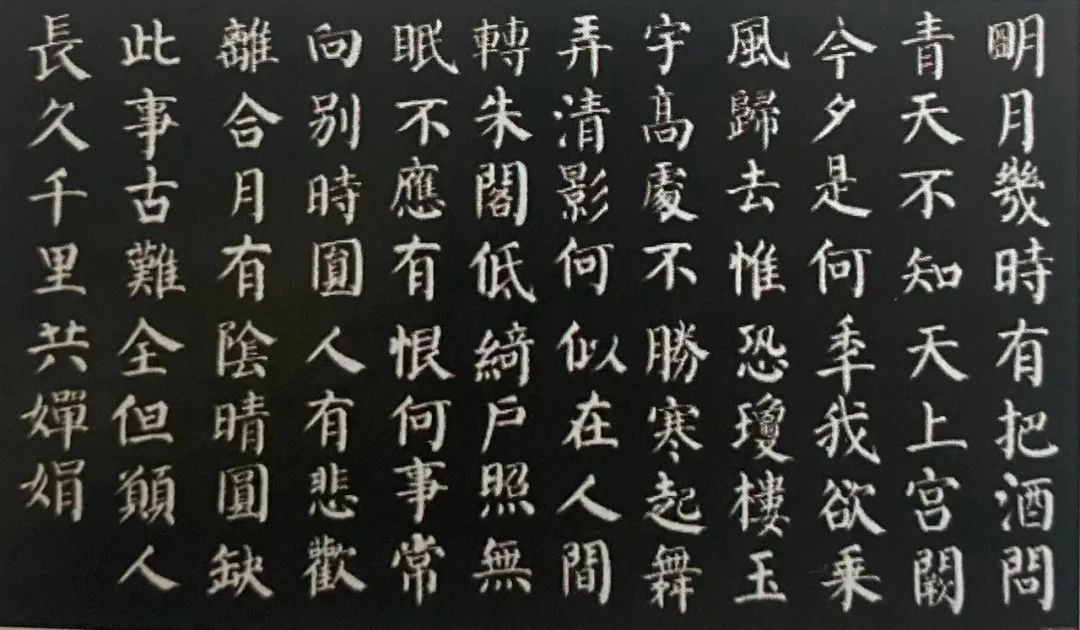 明月幾時有把酒問
青天不知天上宫闕
今夕是何秊我欲乗
風歸去惟恐瓊樓玉
宇髙處不勝寒起舞
弄清影何似在人間
轉朱閣低綺戶照無
眠不應有恨何事常
向别時圓人有悲歡
離合月有陰晴圓缺
此事古難全但願人
長久千里共嬋娟